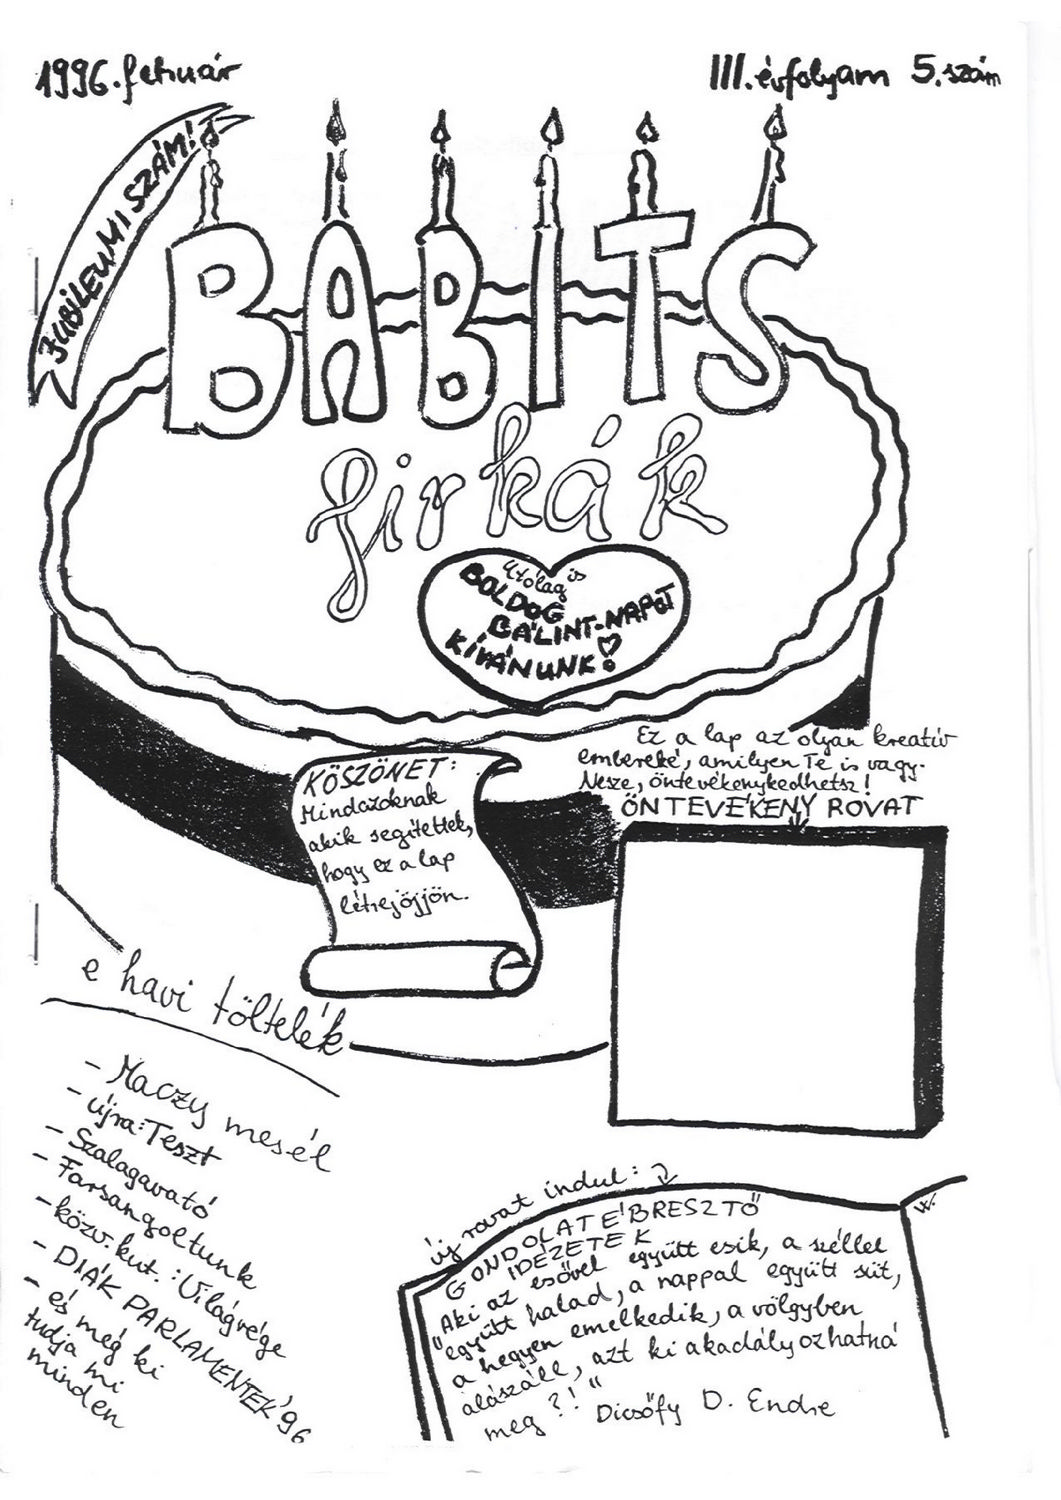 1996. február
III. évfolyam 5. szám
JUBILEUMI SZÁM!
BABITS
firkák
Utólag is
BOLDOG
BÁLINT-NAPOT
KÍVÁNUNK!
KÖSZÖNET:
Mindazoknak
akik segítettek,
hogy ez a lap
létrejöjjön.
Ez a lap az olyan kreatív
embereké, amilyen Te is vagy.
Nesze, öntevékenykedhetsz!
ÖNTEVÉKENY ROVAT
e havi töltelék
- Maczy mesél
- újra: Teszt
- Szalagavató
- Farsangoltunk
- közv. kut.: Világvége
- DIÁK PARLAMENTEK '96
- és még ki
tudja mi
minden
új rovat indul:
GONDOLATÉBRESZTŐ
IDÉZETEK
"Aki az esővel együtt esik, a széllel
együtt halad, a nappal együtt süt,
a hegyen emelkedik, a völgyben
alászáll, azt ki akadályozhatná
meg?!"
Dicsőfy D. Endre
W.